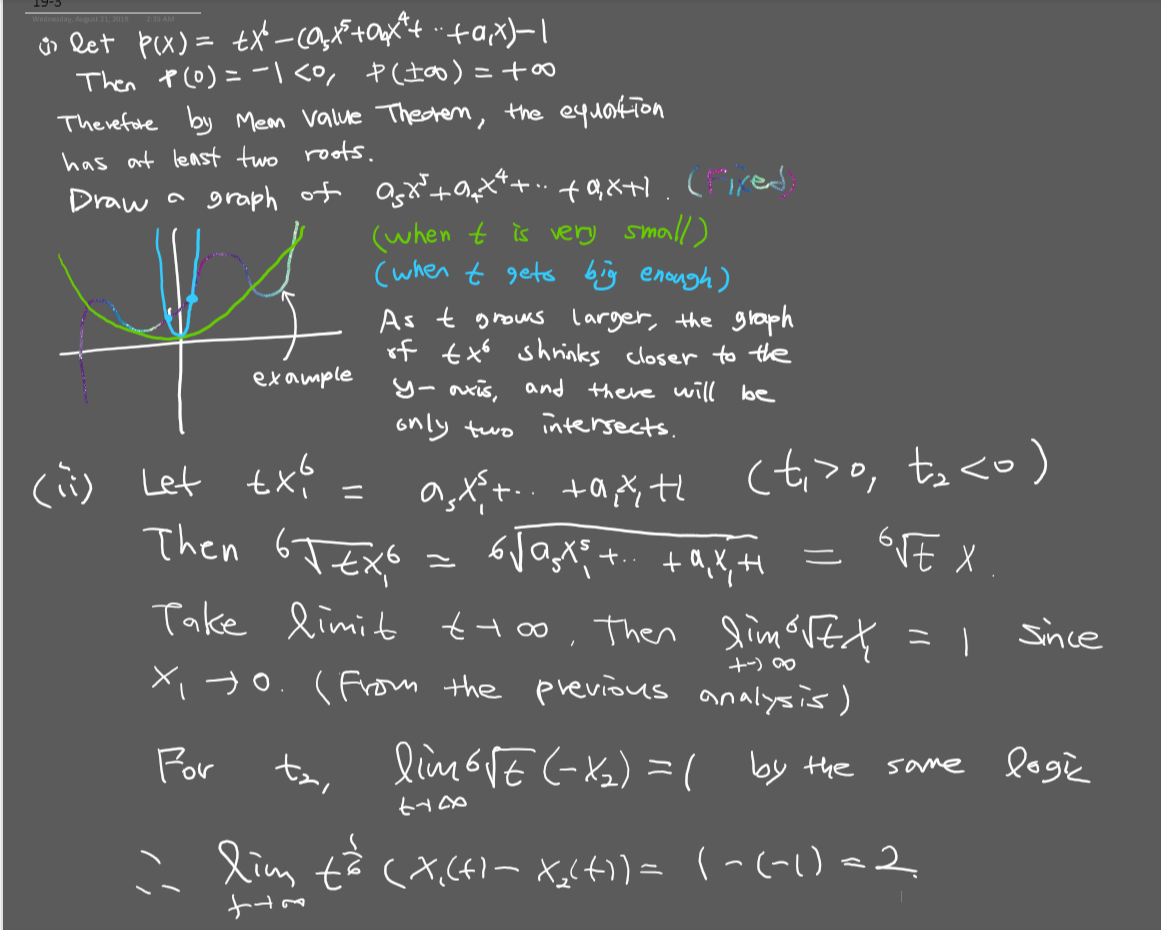 19-3
Wednesday, August 21, 2019 2:35 AM
i) let p(x) = tx⁶ - (a₅x⁵+a₄x⁴+ ·· +a₁x) - 1
Then P(0) = -1 <0, P(±∞) = +∞
Therefore by Mean Value Theorem, the equation
has at least two roots.
Draw a graph of a₅x⁵+a₄x⁴+ ·· + a₁x+1. (Fixed)
(when t is very small)
(when t gets big enough)
As t grows larger, the graph
of tx⁶ shrinks closer to the
y-axis, and there will be
only two intersects.
example
(ii) Let tx₁⁶ = a₅x₁⁵+·· +a₁x₁+1 (t₁>0, t₂<0)
Then ⁶√tx₁⁶ = ⁶√a₅x₁⁵+·· +a₁x₁+1 = ⁶√t x.
Take limit t→∞, Then lim t→∞ ⁶√t x₁ = 1 since
x₁ → 0. (From the previous analysis)
For t₂, lim t→∞ ⁶√t (-x₂) = 1 by the same logic
∴ lim t→∞ t^(1/6) (x₁(t) - x₂(t)) = 1-(-1) = 2.